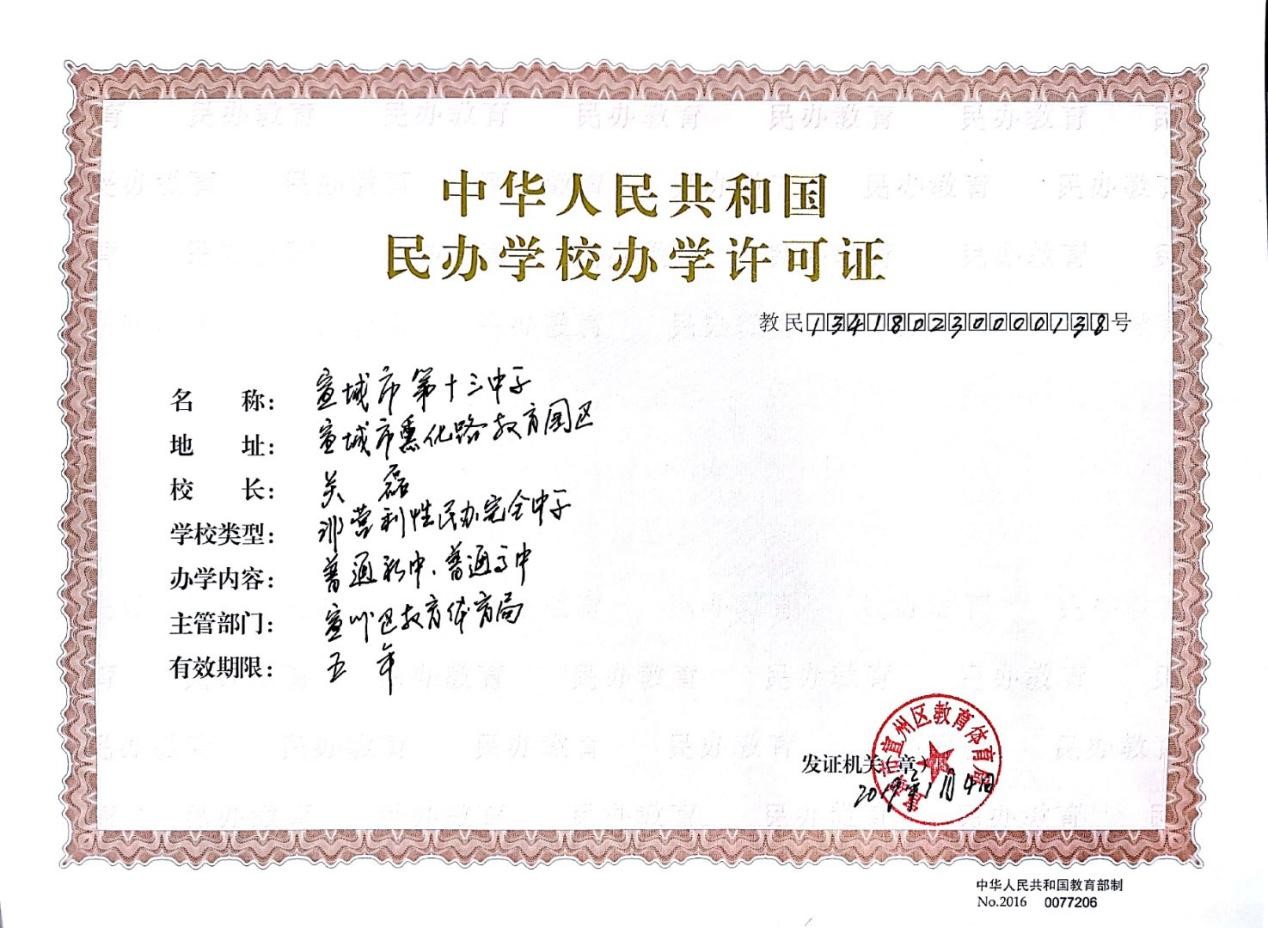 中华人民共和国
民办学校办学许可证
教民134180230000138号
名 称：宣城市第十三中学
地 址：宣城市熏化路教育园区
校 长：关 磊
学校类型：非营利性民办完全中学
办学内容：普通初中、普通高中
主管部门：宣州区教育体育局
有效期限：五 年
宣城市宣州区教育体育局
发证机关（章）
2019年1月4日
中华人民共和国教育部制
No.2016 0077206